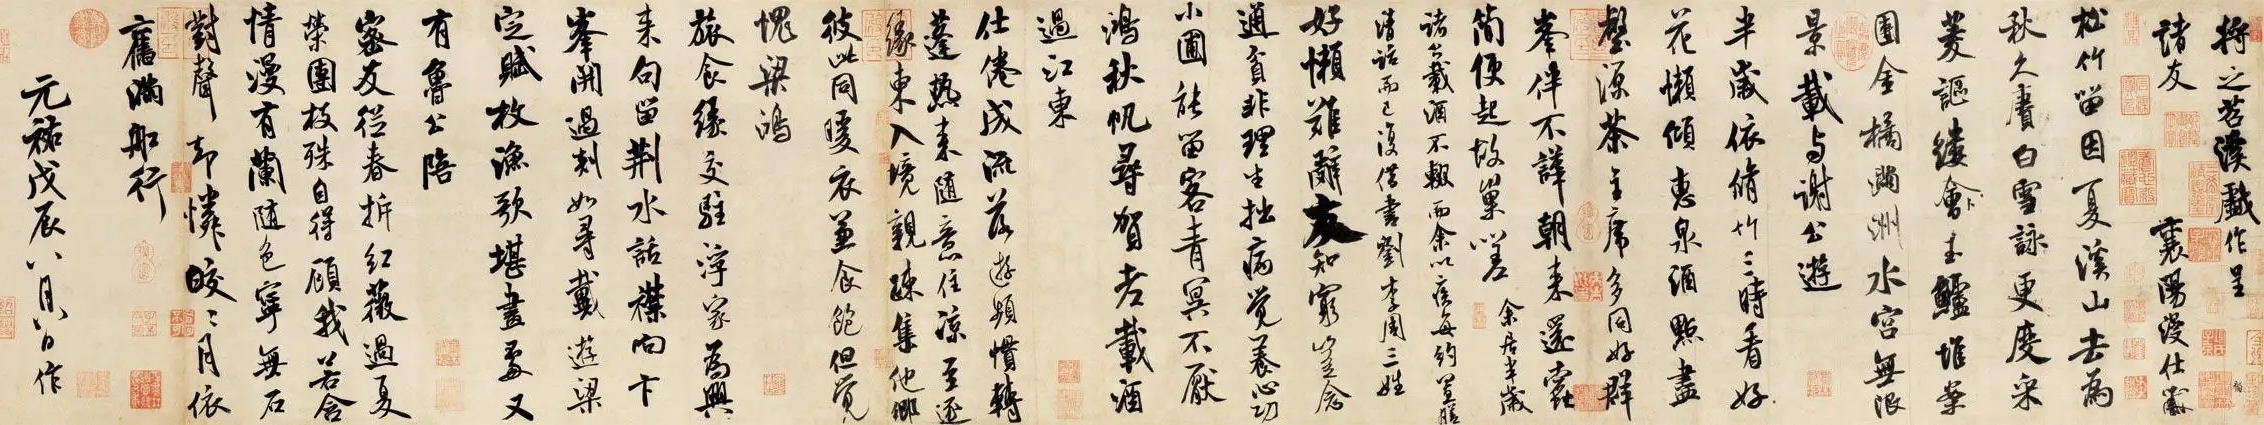 將之苕溪戲作呈
諸友 襄陽漫仕黻
松竹留因夏溪山去為
秋久賡白雪詠更度采
菱謳縷會玉鱸堆案
團金橘滿洲水宮無限
景載与謝公遊
半歲依脩竹三時看好
花懶傾惠泉酒點盡
壑源茶主席多同好群
峯伴不譁朝來還蠹
簡便起故巢嗟 余居半歲
諸公載酒不輟而余以疾每約置膳
清話而已復借書劉李周三姓
好懶難辭友知窮豈念
通貧非理生拙病覺養心功
小圃能留客青冥不厭
鴻秋帆尋賀老載酒
過江東
仕倦成流落遊頻慣轉
蓬熱來隨意住涼至逐
緣東入境親疎集他鄉
彼此同暖衣兼食飽但覺
愧梁鴻
旅食緣交駐浮家為興
來句留荊水話襟向卞
峯開過剡如尋戴遊梁
定賦枚漁歌堪畫處又
有魯公陪
密友從春拆紅薇過夏
榮團枝殊自得顧我若含
情漫有蘭隨色寧無石
對聲却憐皎々月依
舊滿船行
元祐戊辰八月八日作